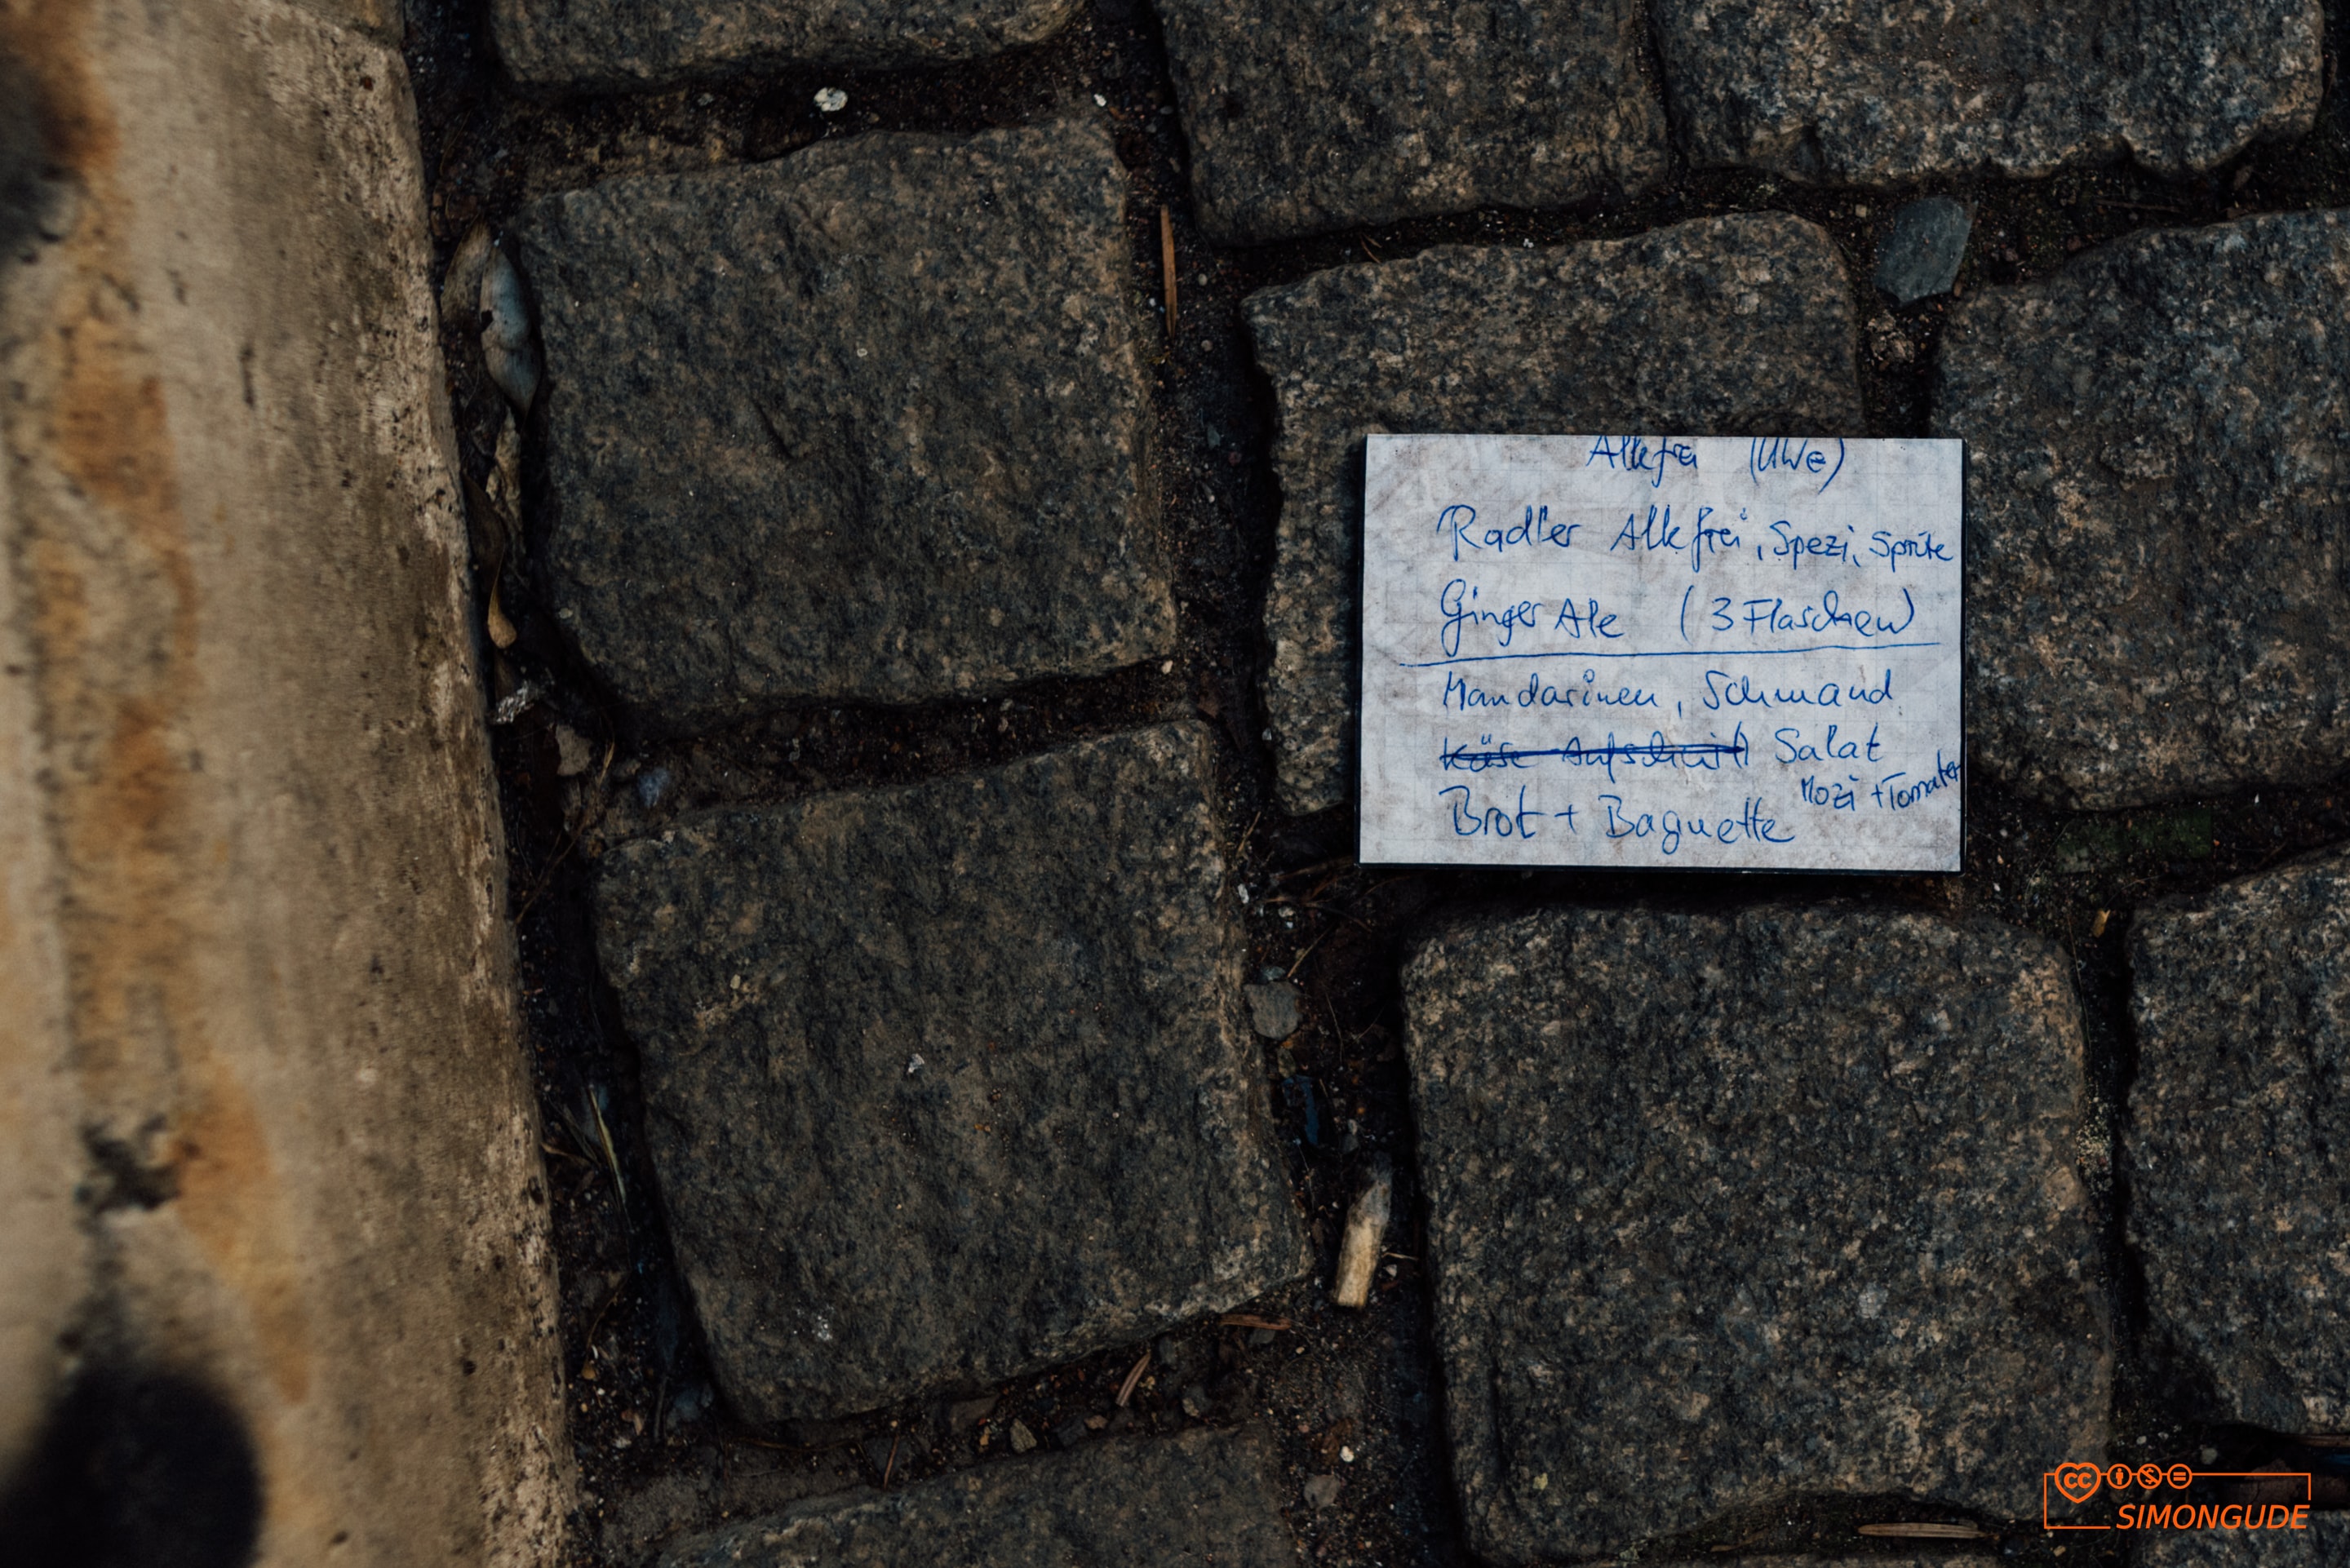 Alkfrei (UWe)
Radler Alkfrei, Spezi, Sprite
Ginger Ale (3 Flaschen)
Mandarinen, Schmand
Käse Aufschnitt Salat
Mozi + Tomaten
Brot + Baguette
cc
SIMONGUDE